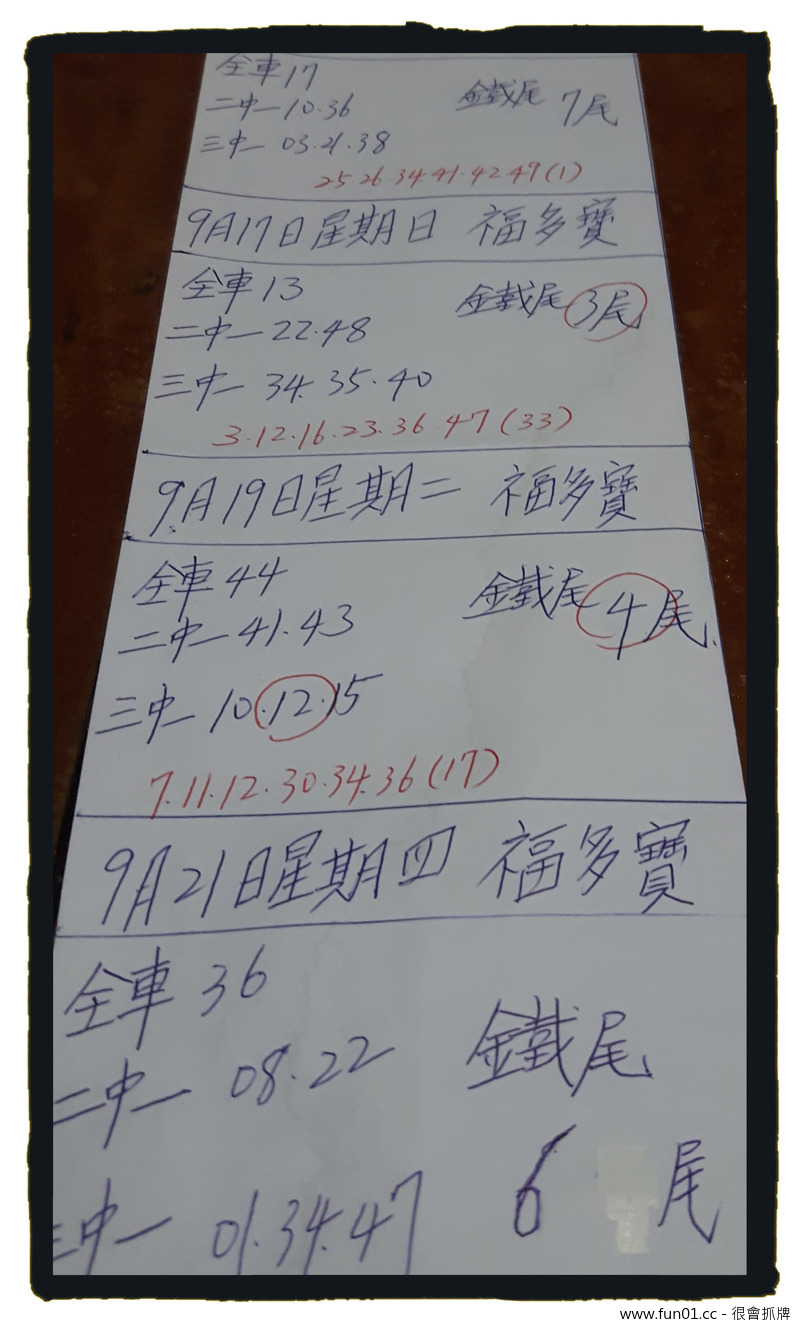 全車17
二中一 10.36 鐵尾 7尾
三中一 03.21.38
25.26.34.41.42.49(1)
9月17日星期日 福多寶
全車13 鐵尾 3尾
二中一 22.48
三中一 34.35.40
3.12.16.23.36.47(33)
9月19日星期二 福多寶
全車44 鐵尾 4尾.
二中一 41.43
三中一 10.12.15
7.11.12.30.34.36(17)
9月21日星期四 福多寶
全車36
二中一 08.22 鐵尾
三中一 01.34.47 6 尾
www.fun01.cc - 很會抓牌